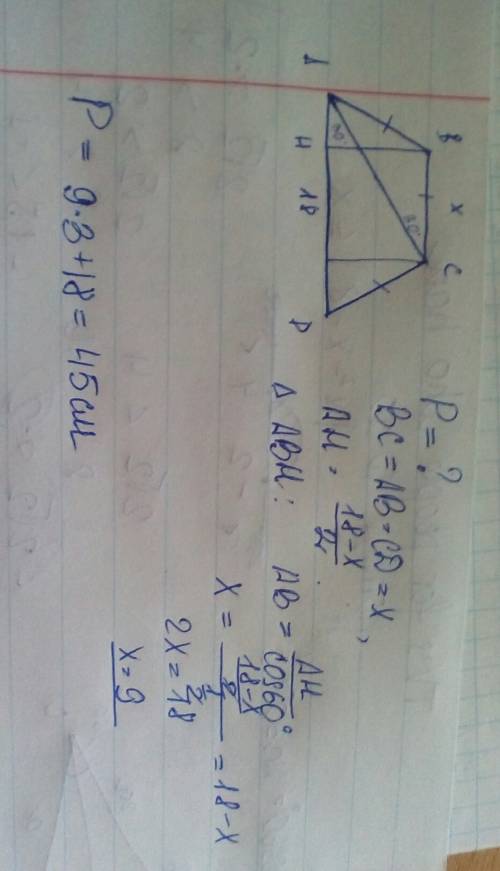 B x C
30°
60°
A H 18 D
P = ?
BC = AB = CD = x,
AH = \frac{18-x}{2}
Δ ABH: AB = \frac{AH}{cos60°}
x = \frac{\frac{18-x}{2}}{\frac{1}{2}} = 18-x
2x = 18
x = 9
P = 9·3+18 = 45 см